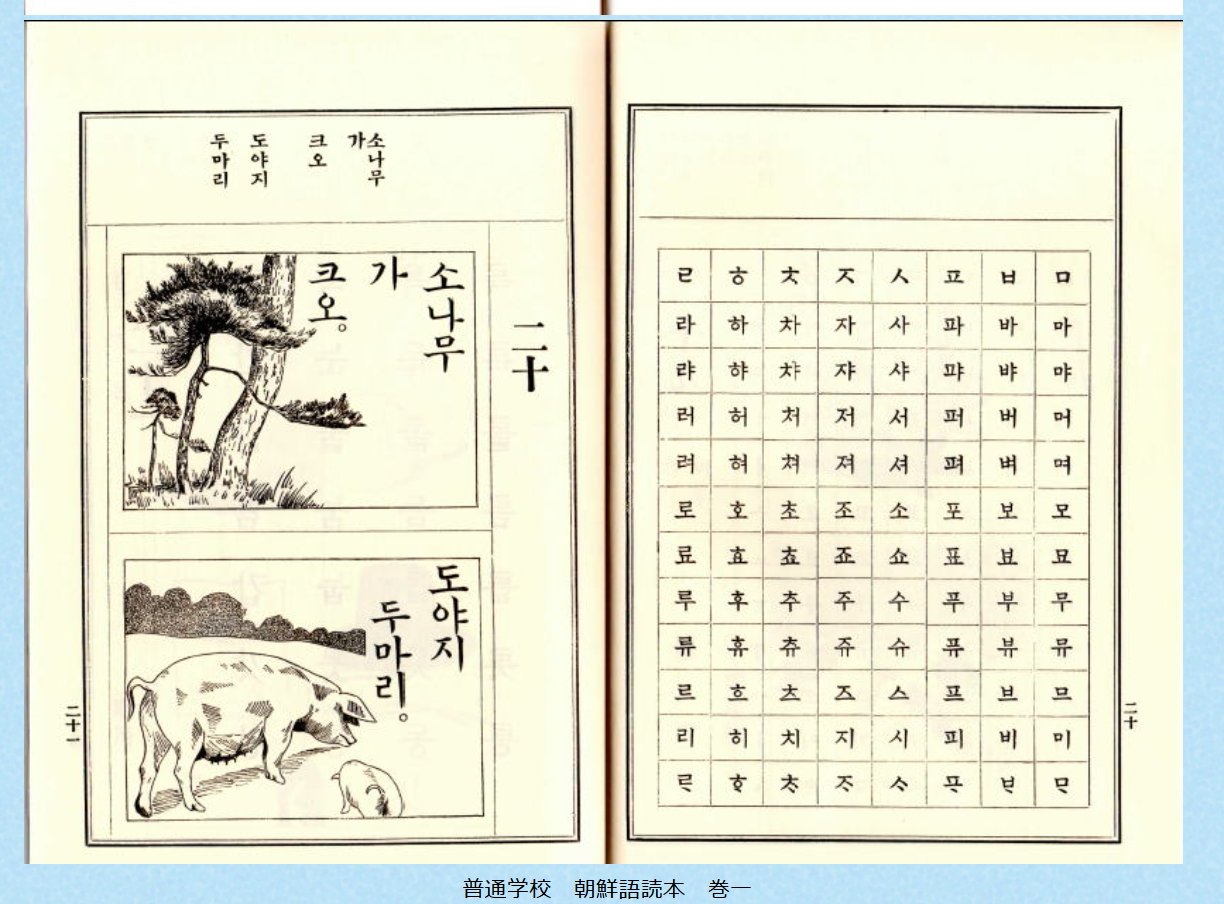 ㅁ 마 먀 머 며 모 묘 무 뮤 므 미 ᄆᆞ
ㅂ 바 뱌 버 벼 보 뵤 부 뷰 브 비 ᄇᆞ
ㅍ 파 퍄 퍼 펴 포 표 푸 퓨 프 피 ᄑᆞ
ㅅ 사 샤 서 셔 소 쇼 수 슈 스 시 ᄉᆞ
ㅈ 자 쟈 저 져 조 죠 주 쥬 즈 지 ᄌᆞ
ㅊ 차 챠 처 쳐 초 쵸 추 츄 츠 치 ᄎᆞ
ㅎ 하 햐 허 혀 호 효 후 휴 흐 히 ᄒᆞ
ㄹ 라 랴 러 려 로 료 루 류 르 리 ᄅᆞ
二十
소나무
가
크오
도야지
두마리
二十
소나무
가
크오。
도야지
두마리。
二十一
普通学校　朝鮮語読本　巻一